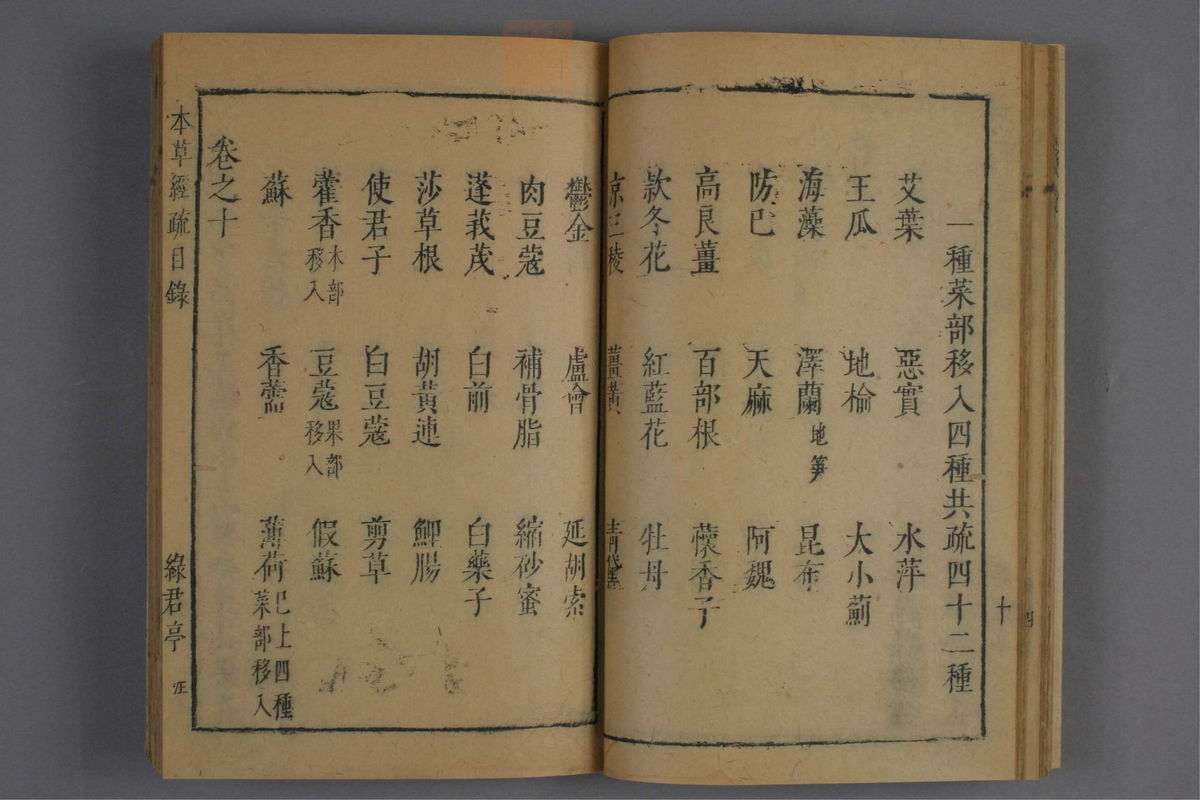 一種菜部移入四種共疏四十二種
艾葉 惡實 水萍
王瓜 地榆 大小薊
海藻 澤蘭地笋 昆布
防巳 天麻 阿魏
高良薑 百部根 蘹香子
款冬花 紅藍花 牡丹
京三稜 薑黃 青黛
鬱金 盧會 延胡索
肉豆蔻 補骨脂 縮砂蜜
蓬莪茂 白前 白藥子
莎草根 胡黃連 鯉腸
使君子 白豆蔻 剪草
藿香木部移入 豆蔻果部移入 假蘇
蘇 香薷 薄荷巳上四種菜部移入
卷之十
本草經疏目錄 綠君亭
十